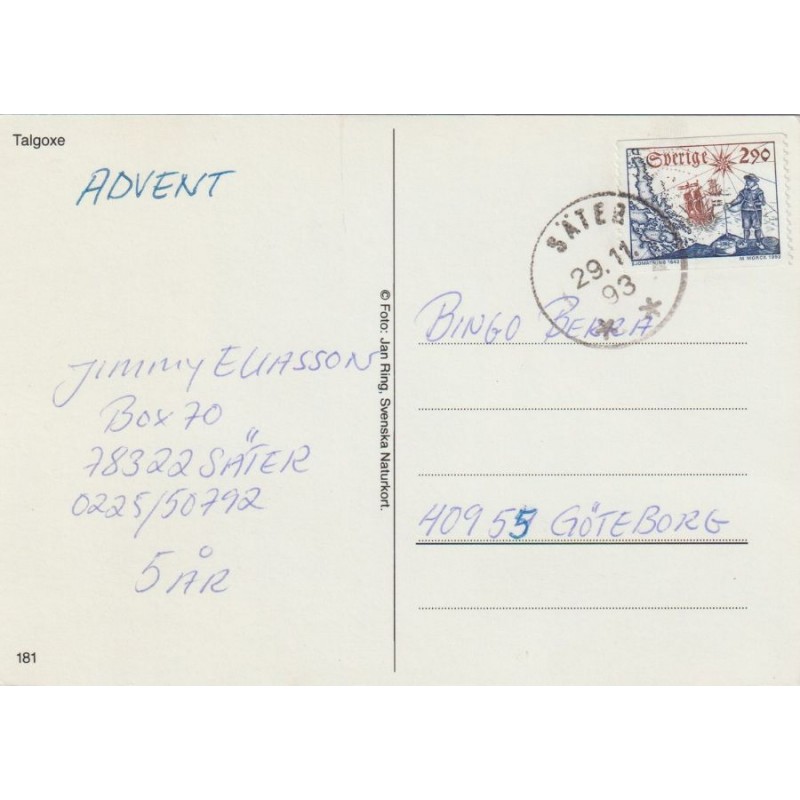 Talgoxe
ADVENT
JIMMY ELIASSON
BOX 70
78322 SÄTER
0225/50792
5 ÅR
181
© Foto: Jan Ring, Svenska Naturkort.
Sverige 290
M MÖRCK 1993
SÄTER
29.11.
93
BINGO BERRA
40955 GÖTEBORG